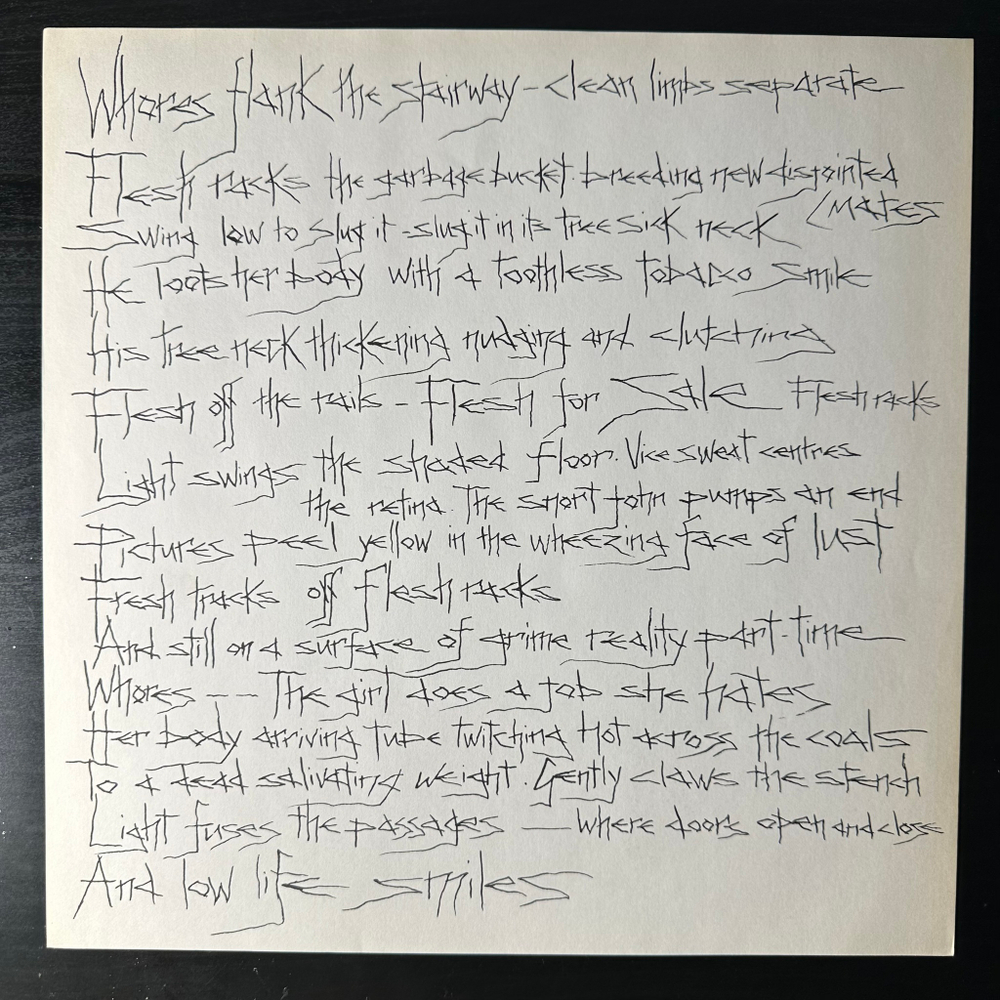 Whores flank the stairway - clean limbs separate
Flesh racks the garbage bucket. breeding new disjointed
(MATES
Swing low to slug it - slug it in its tree sick neck
He loots her body with a toothless tobacco smile
His tree neck thickening nudging and clutching
Flesh off the rails - Flesh for Sale Flesh racks
Light swings the shaded floor. Vice sweat centres
the retina. The snort john pumps an end
Pictures peel yellow in the wheezing face of lust
Fresh tracks off flesh racks
And still on a surface of grime reality part-time
Whores -- The girl does a job she hates
Her body arriving Tube twitching Hot across the coals
To a dead salivating weight. Gently claws the stench
Light fuses the passages — where doors open and close
And low life smiles